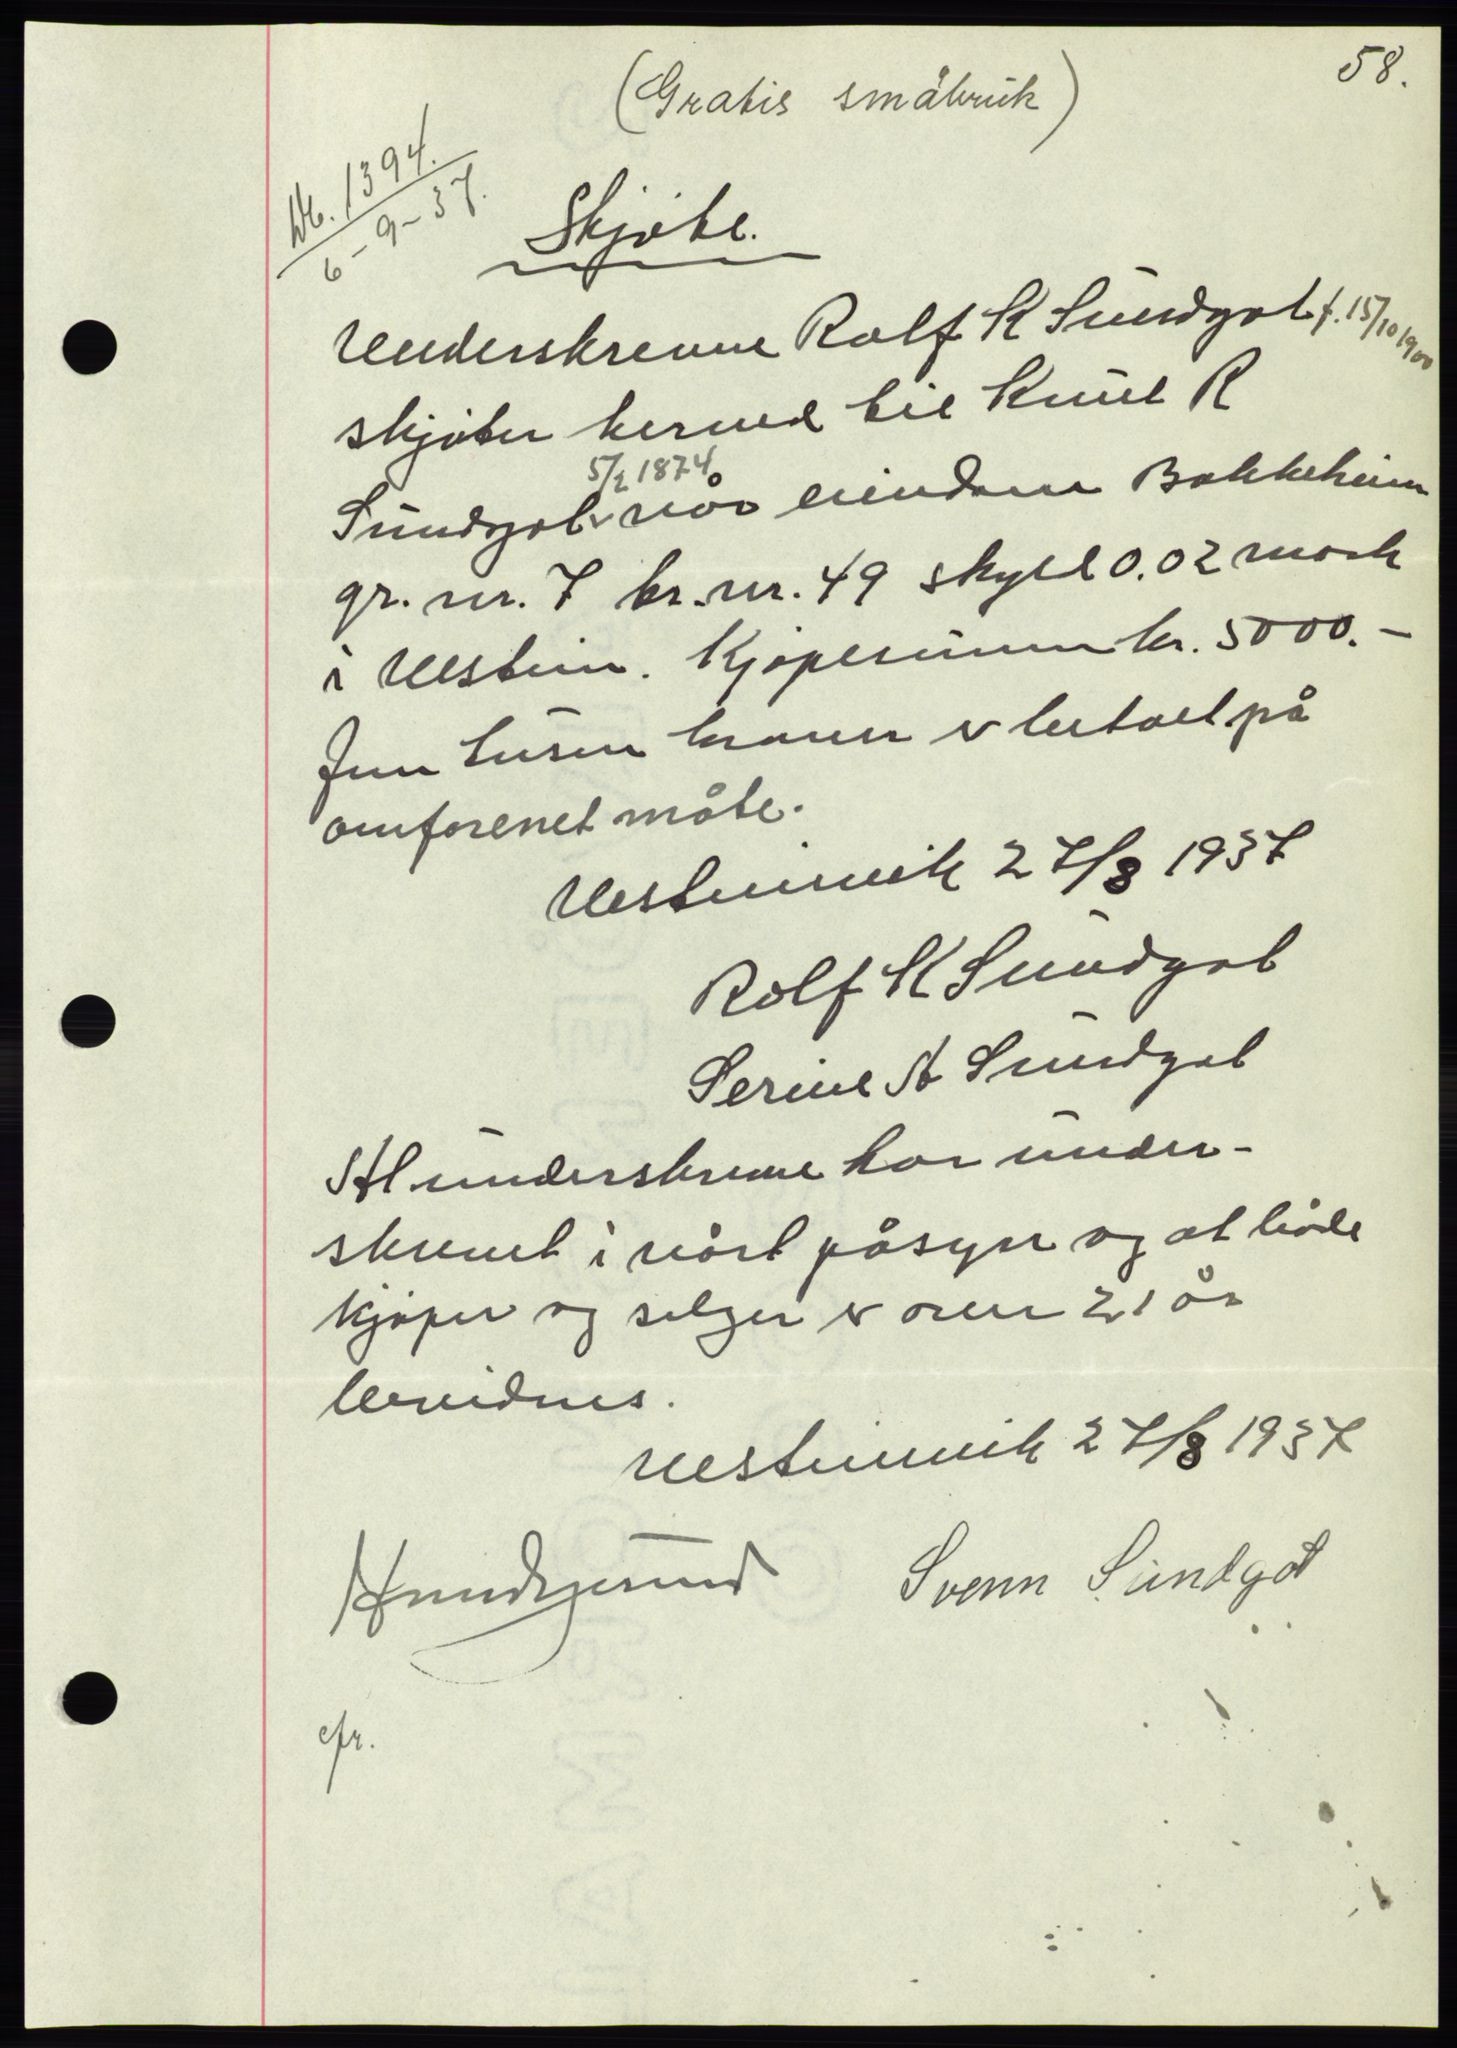 58.
(Gratis småbruk)
Nb. 1394.
6-9-37.
Skjøte.
Underskrevne Rolf K Sundgot f. 15/10 1900
skjøter herved til Knut R
5/2 1874
Sundgot vår eiendom Bakkeheim
gr. nr. 7 br. nr. 49 skyld 0.02 mark
i Ulstein. Kjøpesumm kr. 5000.-
fem tusen kroner er betalt på
omforenet måte.
Ulsteinvik 27/8 1937
Rolf K Sundgot
Serine A Sundgot
At underskrevne har under-
skrevet i vårt påsyn og at både
kjøper og selger er over 21 år
bevidnes.
Ulsteinvik 27/8 1937
Svenn Sundgot
cfr.